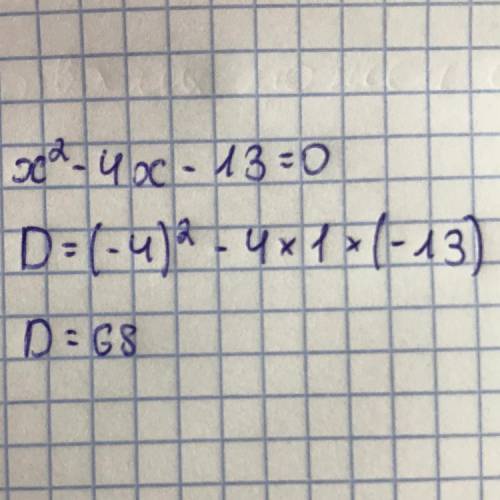 x² - 4x - 13 = 0
D = (-4)² - 4 × 1 × (-13)
D = 68